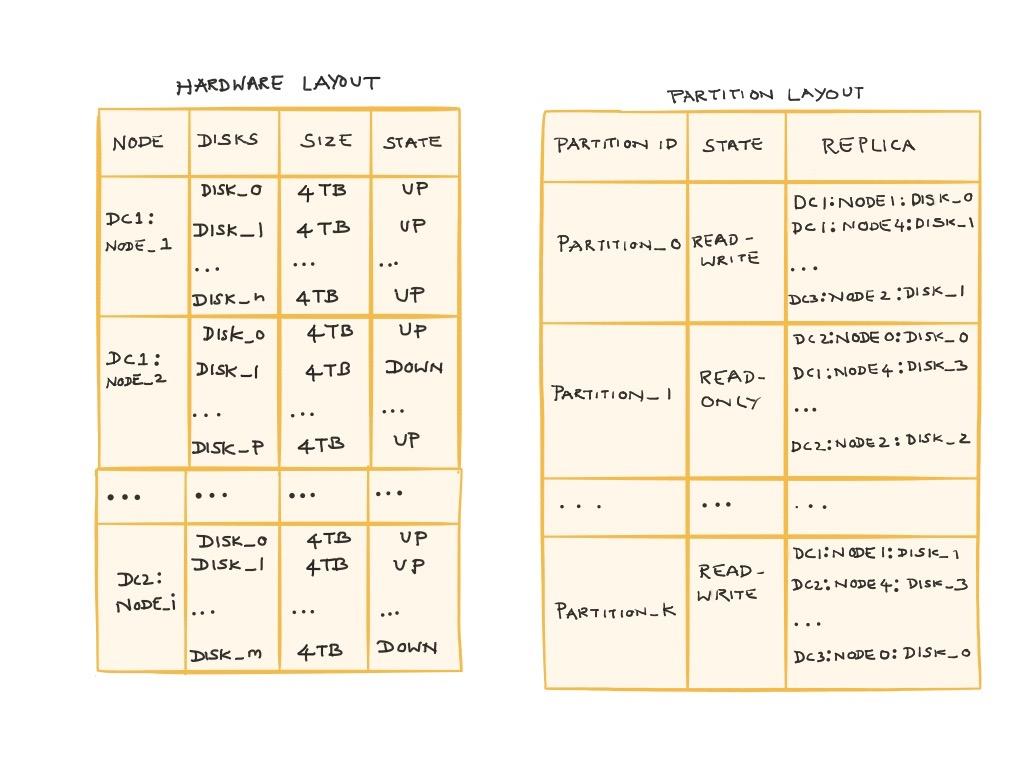 HARDWARE LAYOUT
NODE DISKS SIZE STATE
DC1:
NODE_1
DISK_0 4TB UP
DISK_1 4TB UP
... ... ...
DISK_n 4TB UP
DC1:
NODE_2
DISK_0 4TB UP
DISK_1 4TB DOWN
... ... ...
DISK_P 4TB UP
... ... ... ...
DC2:
NODE_i
DISK_0 4TB UP
DISK_1 4TB UP
... ... ...
DISK_m 4TB DOWN
PARTITION LAYOUT
PARTITION ID STATE REPLICA
PARTITION_0
READ-
WRITE
DC1:NODE1:DISK_0
DC1:NODE4:DISK_1
...
DC3:NODE2:DISK_1
PARTITION_1
READ-
ONLY
DC2:NODE0:DISK_0
DC1:NODE4:DISK_3
...
DC2:NODE2:DISK_2
... ... ...
PARTITION_K
READ-
WRITE
DC1:NODE1:DISK_1
DC2:NODE4:DISK_3
...
DC3:NODE0:DISK_0